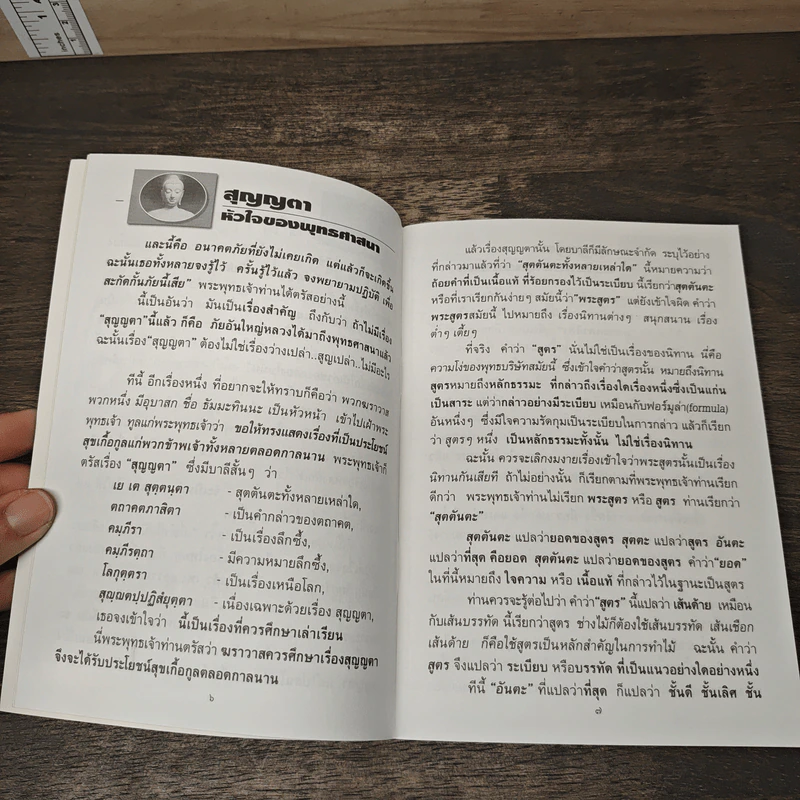 สุญญตา
หัวใจของพุทธศาสนา
และนี้คือ อนาคตภัยที่ยังไม่เคยเกิด แต่แล้วก็จะเกิดขึ้น
ฉะนั้นเธอทั้งหลายจงรู้ไว้ ครั้นรู้ไว้แล้ว จงพยายามปฏิบัติ เพื่อ
สะกัดกั้นภัยนี้เสีย” พระพุทธเจ้าท่านได้ตรัสอย่างนี้
นี้เป็นอันว่า มันเป็นเรื่องสำคัญ ถึงกับว่า ถ้าไม่มีเรื่อง
“สุญญตา”นี้แล้ว ก็คือ ภัยอันใหญ่หลวงได้มาถึงพุทธศาสนาแล้ว
ฉะนั้นเรื่อง“สุญญตา” ต้องไม่ใช่เรื่องว่างเปล่า..สูญเปล่า..ไม่มีอะไร
ทีนี้ อีกเรื่องหนึ่ง ที่อยากจะให้ทราบก็คือว่า พวกฆราวาส
พวกหนึ่ง มีอุบาสก ชื่อ ธัมมะทินนะ เป็นหัวหน้า เข้าไปเฝ้าพระ
พุทธเจ้า ทูลแก่พระพุทธเจ้าว่า ขอให้ทรงแสดงเรื่องที่เป็นประโยชน์
สุขเกื้อกูลแก่พวกข้าพเจ้าทั้งหลายตลอดกาลนาน พระพุทธเจ้าก็
ตรัสเรื่อง “สุญญตา” ซึ่งมีบาลีสั้นๆ ว่า
เย เต สุตฺตนฺตา - สุตตันตะทั้งหลายเหล่าใด,
ตถาคตภาสิตา - เป็นคำกล่าวของตถาคต,
คมฺภีรา - เป็นเรื่องลึกซึ้ง,
คมฺภีรตฺถา - มีความหมายลึกซึ้ง,
โลกุตฺตรา - เป็นเรื่องเหนือโลก,
สุญฺญตปฺปฏิสํยุตฺตา - เนื่องเฉพาะด้วยเรื่อง สุญญตา,
เธอจงเข้าใจว่า นี้เป็นเรื่องที่ควรศึกษาเล่าเรียน
นี่พระพุทธเจ้าท่านตรัสว่า ฆราวาสควรศึกษาเรื่องสุญญตา
จึงจะได้รับประโยชน์สุขเกื้อกูลตลอดกาลนาน
๖
แล้วเรื่องสุญญตานั้น โดยบาลีก็มีลักษณะจำกัด ระบุไว้อย่าง
ที่กล่าวมาแล้วที่ว่า “สุตตันตะทั้งหลายเหล่าใด” นี้หมายความว่า
ถ้อยคำที่เป็นเนื้อแท้ ที่ร้อยกรองไว้เป็นระเบียบ นี้เรียกว่าสุตตันตะ
หรือที่เราเรียกกันง่ายๆ สมัยนี้ว่า“พระสูตร” แต่ยังเข้าใจผิด คำว่า
พระสูตรสมัยนี้ ไปหมายถึง เรื่องนิทานต่างๆ สนุกสนาน เรื่อง
ต่ำๆ เตี้ยๆ
ที่จริง คำว่า “สูตร” นั่นไม่ใช่เป็นเรื่องของนิทาน นี่คือ
ความโง่ของพุทธบริษัทสมัยนี้ ซึ่งเข้าใจคำว่าสูตรนั้น หมายถึงนิทาน
สูตรหมายถึงหลักธรรมะ ที่กล่าวถึงเรื่องใดเรื่องหนึ่งซึ่งเป็นแก่น
เป็นสาระ แต่ว่ากล่าวอย่างมีระเบียบ เหมือนกับฟอร์มูล่า(formula)
อันหนึ่งๆ ซึ่งมีใจความรัดกุมเป็นระเบียบในการกล่าว แล้วก็เรียก
ว่า สูตรๆ หนึ่ง เป็นหลักธรรมะทั้งนั้น ไม่ใช่เรื่องนิทาน
ฉะนั้น ควรจะเลิกงมงายเรื่องเข้าใจว่าพระสูตรนั้นเป็นเรื่อง
นิทานกันเสียที ถ้าไม่อย่างนั้น ก็เรียกตามที่พระพุทธเจ้าท่านเรียก
ดีกว่า พระพุทธเจ้าท่านไม่เรียก พระสูตร หรือ สูตร ท่านเรียกว่า
“สุตตันตะ”
สุตตันตะ แปลว่ายอดของสูตร สุตตะ แปลว่าสูตร อันตะ
แปลว่าที่สุด คือยอด สุตตันตะ แปลว่ายอดของสูตร คำว่า“ยอด”
ในที่นี้หมายถึง ใจความ หรือ เนื้อแท้ ที่กล่าวไว้ในฐานะเป็นสูตร
ท่านควรจะรู้ต่อไปว่า คำว่า“สูตร” นี้แปลว่า เส้นด้าย เหมือน
กับเส้นบรรทัด นี้เรียกว่าสูตร ช่างไม้ก็ต้องใช้เส้นบรรทัด เส้นเชือก
เส้นด้าย ก็คือใช้สูตรเป็นหลักสำคัญในการทำไม้ ฉะนั้น คำว่า
สูตร จึงแปลว่า ระเบียบ หรือบรรทัด ที่เป็นแนวอย่างใดอย่างหนึ่ง
ทีนี้ “อันตะ” ที่แปลว่าที่สุด ก็แปลว่า ชั้นดี ชั้นเลิศ ชั้น
๗